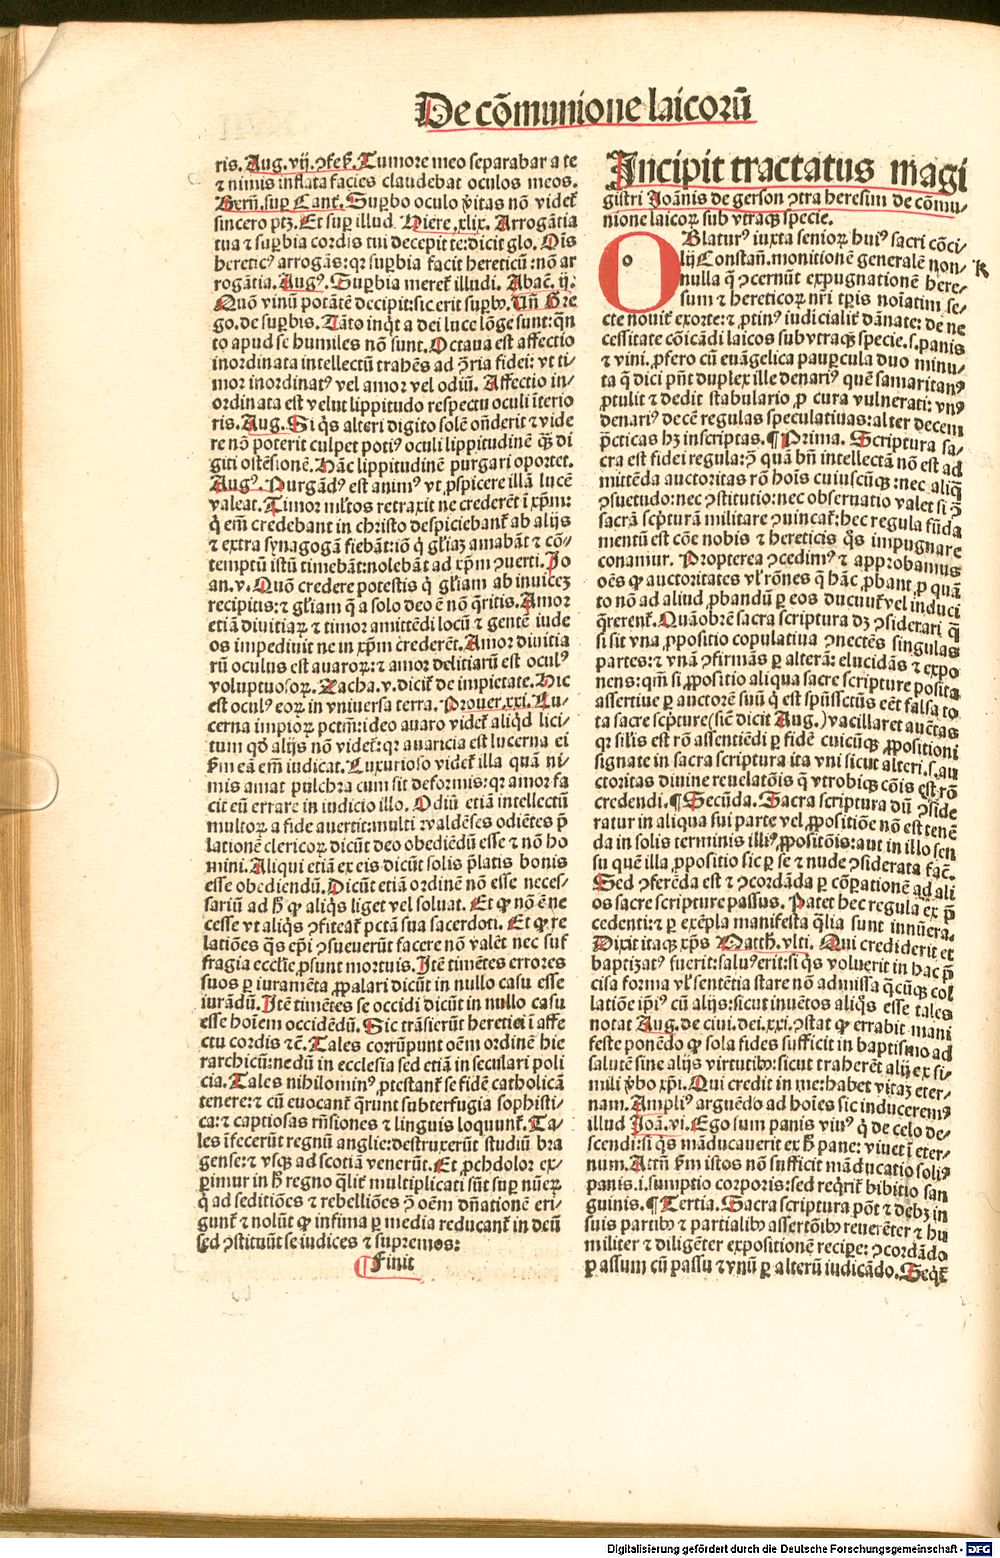 De cõmunione laicorũ
ris. Aug. vij. ꝯfeſ. Tumore meo ſeparabar a te
⁊ nimis inflata facies claudebat oculos meos.
Bern̄. ſup Cant. Suꝑbo oculo ṽitas nõ videt̃
ſincero ptꝫ. Et ſuꝑ illud Hiere. xlix. Arrogãtia
tua ⁊ ſuꝑbia cordis tui decepit te: dicit glo. Oĩs
heretic⁹ arrogãs: qꝛ ſuꝑbia facit hereticũ: nõ ar
rogãtia. Aug⁹. Suꝑbia meret̃ illudi. Abac. ij.
Quõ vinũ potãtẽ decipit: ſic erit ſuꝑbꝰ. Uñ Gre
go. de ſuꝑbis. Tãto inq̇t a dei luce lõge ſunt: q̃n
to apud ſe humiles nõ ſunt. Octaua eſt affectio
inordinata intellectũ trahẽs ad ꝯ̃ria fidei: vt ti-
mor inordinat⁹ vel amor vel odiũ. Affectio in-
ordinata eſt velut lippitudo reſpectu oculi ĩterio
ris. Aug. Si q̇s alteri digito ſolẽ oñderit ⁊ vide
re nõ poterit culpet poti⁹ oculi lippitudinẽ q̃ꝫ di
giti oſtẽſionẽ. Hãc lippitudinẽ purgari oportet.
Aug⁹. Purgãd⁹ eſt anim⁹ vt ꝑſpicere illã lucẽ
valeat. Timor ml̃tos retraxit ne crederẽt ĩ xp̃m:
q̇ em̃ credebant in chriſto deſpiciebant̃ ab alijs
⁊ extra ſynagogã fiebãt: iõ q̇ gl̃iaꝫ amabãt ⁊ cõ-
temptũ iſtũ timebãt: nolebãt ad xp̃m ꝯuerti. Jo
an. v. Quõ credere poteſtis q̇ gl̃iam ab inuiceꝫ
recipitis: ⁊ gl̃iam q̃ a ſolo deo ẽ nõ q̃ritis. Amor
etiã diuitiaꝝ ⁊ timor amittẽdi locũ ⁊ gentẽ iude
os impediuit ne in xp̃m crederẽt. Amor diuitia
rũ oculus eſt auaroꝝ: ⁊ amor delitiarũ eſt ocul⁹
voluptuoſoꝝ. Zacha. v. dicit̃ de impietate. Hic
eſt ocul⁹ eoꝝ in vniuerſa terra. Prouer. xxi. Lu-
cerna impioꝝ pctm̃: ideo auaro videt̃ aliq̇d lici-
tum qd̃ alijs nõ videt̃: qꝛ auaricia eſt lucerna ei
ẜm eã em̃ iudicat. Luxurioſo videt̃ illa quã ni-
mis amat pulchra cum ſit deformis: qꝛ amor fa
cit eũ errare in iudicio illo. Odiũ etiã intellectũ
multoꝝ a fide auertit: multi ⁊ valdẽſes odiẽtes p̃
lationẽ clericoꝝ dicũt deo obediẽdũ eſſe ⁊ nõ ho
mini. Aliqui etiã ex eis dicũt ſolis p̃latis bonis
eſſe obediendũ. Dicũt etiã ordinẽ nõ eſſe neceſ-
ſariũ ad ħ ꝙ aliq̇s liget vel ſoluat. Et ꝙ nõ ẽ ne
ceſſe vt aliq̇s ꝯfiteat̃ pctã ſua ſacerdoti. Et ꝙ re
latiões q̃s ep̃i ꝯſueuerũt facere nõ valẽt nec ſuf
fragia eccl̃ie ꝓſunt mortuis. Itẽ timẽtes errores
ſuos ꝑ iuramẽta ꝓpalari dicũt in nullo caſu eſſe
iurãdũ. Itẽ timẽtes ſe occidi dicũt in nullo caſu
eſſe hoĩem occidẽdũ. Sic trãſierũt heretici ĩ affe
ctu cordis ⁊cẽ. Tales corrũpunt oẽm ordinẽ hie
rarchicũ: nedũ in eccleſia ſed etiã in ſeculari poli
cia. Tales nihilomin⁹ ꝓteſtant̃ ſe fidẽ catholicã
tenere: ⁊ cũ euocant̃ q̃runt ſubterfugia ſophiſti-
ca: ⁊ captioſas rñſiones ⁊ linguis loquunt̃. Ta-
les ĩfecerũt regnũ anglie: deſtruxerũt ſtudiũ bra
genſe: ⁊ vſqꝫ ad ſcotiã venerũt. Et ꝓchdolor ex-
ꝑimur in ħ regno q̃lit̃ multiplicati ſũt ſuꝑ nũeꝝ
q̇ ad ſeditiões ⁊ rebelliões ꝯ̃ oẽm dñationẽ eri-
gunt̃ ⁊ nolũt ꝙ infima ꝑ media reducant̃ in deũ
ſed ꝯſtituũt ſe iudices ⁊ ſupremos:
¶ Finit
Incipit tractatus magi
giſtri Joãnis de gerſon ꝯtra hereſim de cõmu-
nione laicoꝝ ſub vtraqꝫ ſpecie.
OBlatur⁹ iuxta ſenioꝝ hui⁹ ſacri cõci-
lij Conſtañ. monitionẽ generalẽ non-
nulla q̃ ꝯcernũt expugnationẽ here-
ſum ⁊ hereticoꝝ nr̃i tꝑis noĩatim ſe-
cte nouit̃ exorte: ⁊ ꝓtin⁹ iudicialit̃ dãnate: de ne
ceſſitate cõicãdi laicos ſub vtraqꝫ ſpecie. ſ. panis
⁊ vini. ꝓfero cũ euãgelica pauꝑcula duo minu-
ta q̃ dici pñt duplex ille denari⁹ quẽ ſamaritan⁹
ꝓtulit ⁊ dedit ſtabulario ꝓ cura vulnerati: vn⁹
denari⁹ decẽ regulas ſpeculatiuas: alter decem
p̃cticas hꝫ inſcriptas. ¶ Prima. Scriptura ſa-
cra eſt fidei regula: ꝯ̃ quã bñ intellectã nõ eſt ad
mittẽda auctoritas rõ hoĩs cuiuſcũqꝫ: nec aliq̃
ꝯſuetudo: nec ꝯſtitutio: nec obſeruatio valet ſi ꝯ̃
ſacrã ſcp̃turã militare ꝯuincat̃: hec regula fũda
mentũ eſt cõe nobis ⁊ hereticis q̃s impugnare
conamur. Propterea ꝯcedim⁹ ⁊ approbamus
oẽs ꝙ auctoritates vl̃ rõnes q̃ hãc ꝓbant ꝓ quã
to nõ ad aliud ꝓbandũ ꝑ eos ducunt̃ vel induci
q̃rerent̃. Quãobrẽ ſacra ſcriptura dꝫ ꝯſiderari q̃
ſi ſit vna ꝓpoſitio copulatiua ꝯnectẽs ſingulas
partes: ⁊ vnã ꝯfirmãs ꝑ alterã: elucidãs ⁊ expo
nens: qm̃ ſi ꝓpoſitio aliqua ſacre ſcripture poſita
aſſertiue ꝑ auctorẽ ſuũ q̇ eſt ſpũſſctũs eẽt falſa to
ta ſacre ſcp̃ture (ſic̃ dicit Aug.) vacillaret auc̃tas
qꝛ ſil̃is eſt rõ aſſentiẽdi ꝑ fidẽ cuicũqꝫ ꝓpoſitioni
ſignate in ſacra ſcriptura ita vni ſicut alteri. ſ. au
ctoritas diuine reuelatõis q̃ vtrobiqꝫ cõis eſt rõ
credendi. ¶ Secũda. Sacra ſcriptura dũ ꝯſide
ratur in aliqua ſui parte vel ꝓpoſitiõe nõ eſt tenẽ
da in ſolis terminis illi⁹ ꝓpoſitõis: aut in illo ſen
ſu quẽ illa ꝓpoſitio ſic ꝑ ſe ⁊ nude ꝯſiderata fac̃.
Sed ꝯferẽda eſt ⁊ ꝯcordãda ꝑ cõꝑationẽ ad ali
os ſacre ſcripture paſſus. Patet hec regula ex p̃
cedenti: ⁊ ꝑ exẽpla manifeſta q̃lia ſunt innũera.
Dixit itaqꝫ xp̃s Matth̃. vlti. Qui crediderit et
baptizat⁹ fuerit: ſalu⁹ erit: ſi q̇s voluerit in hac p̃
ciſa forma vl̃ ſentẽtia ſtare nõ admiſſa q̃cũqꝫ col
latiõe ip̃i⁹ cũ alijs: ſicut inuẽtos aliq̇s eſſe tales
notat Aug. de ciui. dei. xxi. ꝯſtat ꝙ errabit mani
feſte ponẽdo ꝙ ſola fides ſufficit in baptiſmo ad
ſalutẽ ſine alijs virtutibꝰ: ſicut traherẽt alij ex ſi-
mili ṽbo xp̃i. Qui credit in me: habet vitaꝫ eter-
nam. Ampli⁹ arguẽdo ad hoĩes ſic inducerem⁹
illud Joã. vi. Ego ſum panis viu⁹ q̇ de celo de-
ſcendi: ſi q̇s mãducauerit ex ħ pane: viuet ĩ eter-
num. Attñ ẜm iſtos nõ ſufficit mãducatio ſoli⁹
panis. i. ſumptio corporis: ſed req̇rit̃ bibitio ſan
guinis. ¶ Tertia. Sacra ſcriptura põt ⁊ debꝫ in
ſuis partibꝰ ⁊ partialibꝰ aſſertõibꝰ reuerẽter ⁊ hu
militer ⁊ diligẽter expoſitionẽ reciꝑe: ꝯcordãdo
ꝑ aſſum cũ paſſu ⁊ vnũ ꝑ alterũ iudicãdo. Seq̇t̃
Digitalisierung gefördert durch die Deutsche Forschungsgemeinschaft - DFG